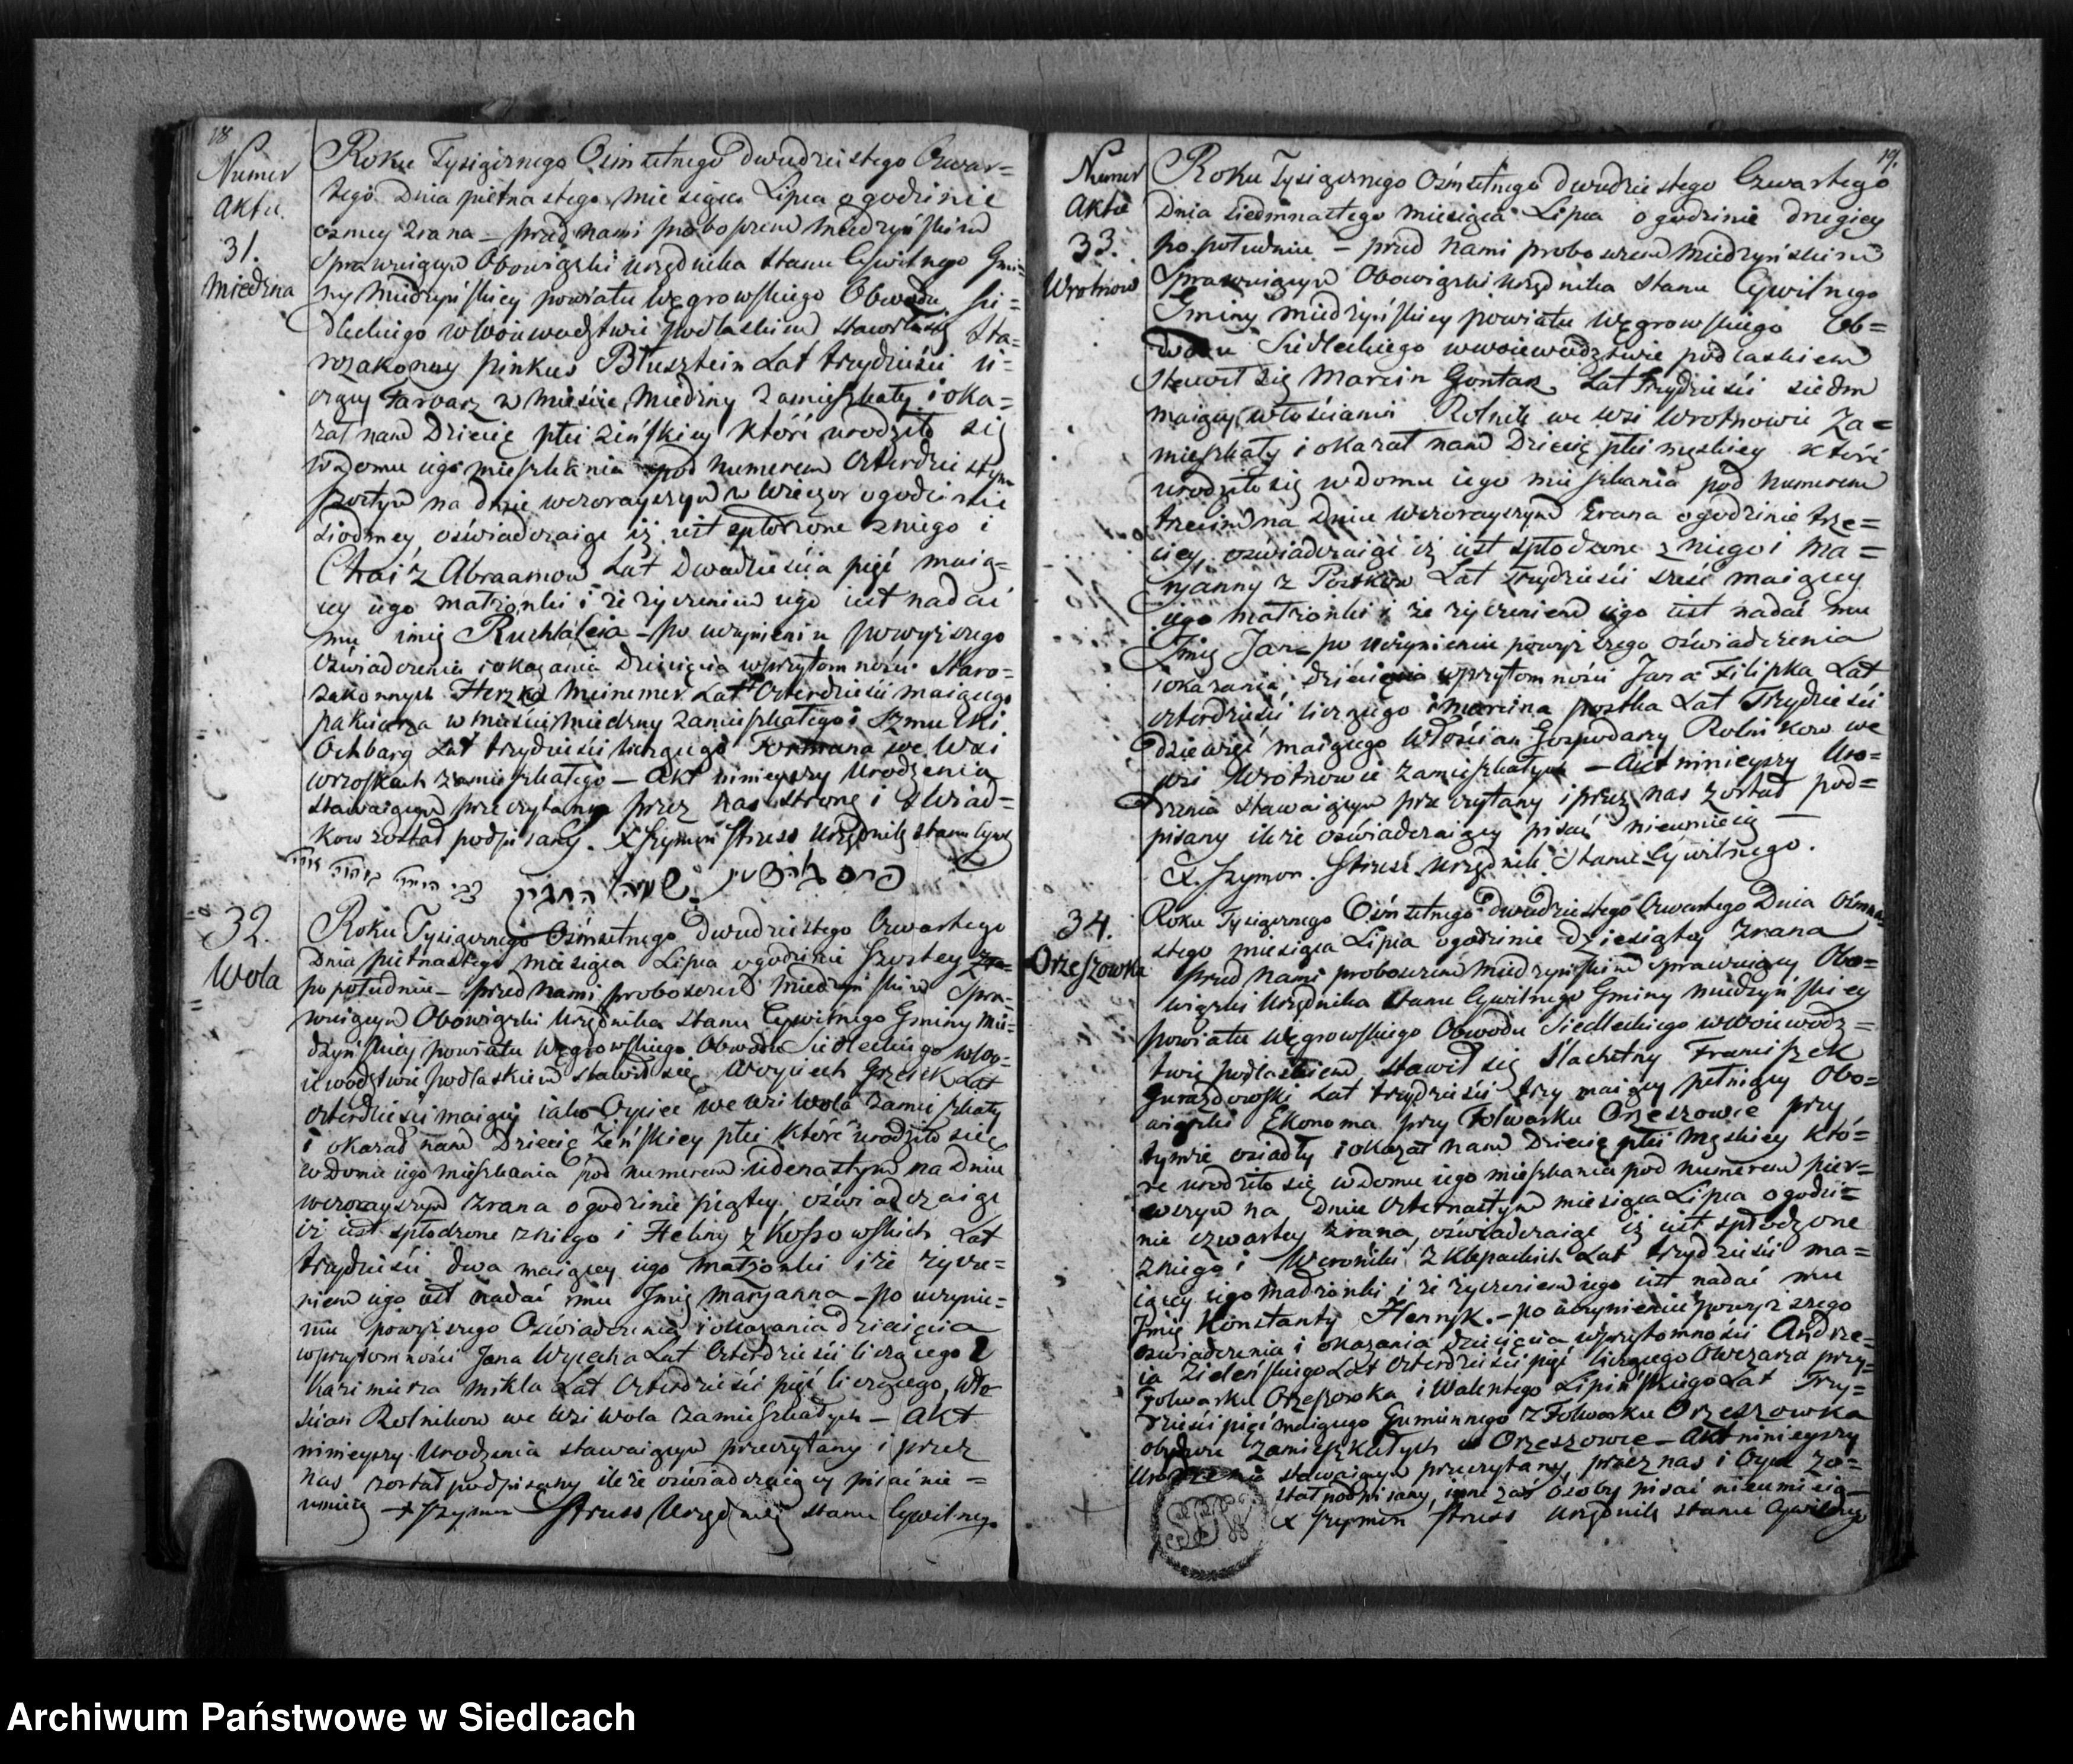 18
Numer
Aktu.
31.
Miedzna
Roku Tysiącznego Ośmsetnego dwudziestego Czwar=
tego Dnia piętnastego miesiąca Lipca o godzinie
ósmey zrana – przed nami proboszczem Miedzyńskim
Sprawuiącym Obowiązki Urzędnika Stanu Cywilnego Gmi=
ny Miedzyńskiey powiatu Węgrowskiego Obwodu Sie=
dleckiego w Woiewodztwie podlaskiem stawił się Sta=
rozakonny Pinkus Blusztein Lat trzydzieści li=
czący Farbarz w Mieście Miedzny zamieszkały i oka=
zał nam Dziecię płci zińskiey które urodziło się
w domu iego mieszkania pod numerem czterdziestym
szostym na dniu wczorayszym w wieczor o godzinie
siodmey oświadczaiąc iż iest spłodzone z niego i
Chai z Abraamow Lat Dwadzieścia pięć maią=
cy iego małżonki i że życzeniem iego iest nadać
mu imię Ruchla – po uczynieniu powyższego
Oświadczenia i okazania Dziecięcia w przytomności Staro=
zakonnych Herzka Meinemer Lat Czterdzieści maiącego
pakciarza w mieście Miedzny zamieszkałego i Szmulki
Ochbarg Lat trzydzieści liczącego Formana we Wsi
Wrzoskach zamieszkałego – Akt ninieyszy Urodzenia
stawaiącym przeczytany przez nas stronę i Swiad=
kow został podpisany. X Szymon Struss Urzędnik Stanu Cywil
32.
Wola
Roku Tysiącznego Ośmsetnego dwudziestego Czwartego
Dnia piętnastego miesiąca Lipca o godzinie szostey
po południu – przed nami proboszczem Miedzyńskim Spra=
wuiącym Obowiązki Urzędnika Stanu Cywilnego Gminy Mie=
dzyńskiey powiatu Węgrowskiego Obwodu Siedleckiego w Wo=
iewodztwie podlaskiem stawił się Woyciech Grzesiek Lat
czterdzieści maiący iako Oyciec we wsi Wola zamieszkały
i okazał nam Dziecię żeńskiey płci które urodziło się
w domu iego mieszkania pod numerem iedenastym na dniu
wczorayszym zrana o godzinie piątey oświadczaiąc
iż iest spłodzone z niego i Heleny z Kossowskich Lat
trzydzieści dwa maiącey iego małżonki i że życze=
niem iego iest nadać mu Imię Maryanna – po uczynie=
niu powyższego Oświadczenia i okazania dziecięcia
w przytomności Jana Wycecha Lat Czterdzieści liczącego i
Kazimierza Mikla Lat Czterdzieści pięć liczącego, Wło=
ścian Rolnikow we Wsi Wola zamieszkałych – Akt
ninieyszy Urodzenia stawaiącym przeczytany i przez
nas został podpisany ile że oświadczaiący pisać nie=
umieią – X Szymon Struss Urzędnik Stanu Cywilnego
19.
Numer
Aktu
33.
Wrotnow
Roku Tysiącznego Ośmsetnego dwudziestego Czwartego
Dnia siedmnastego miesiąca Lipca o godzinie drugiey
po południu – przed nami proboszczem Miedzyńskim
Sprawuiącym Obowiązki Urzędnika Stanu Cywilnego
Gminy Miedzyńskiey powiatu Węgrowskiego Ob=
wodu Siedleckiego w Woiewodztwie podlaskiem
Stawił się Marcin Gontarz Lat Trzydzieści siedm
maiący włościanin Rolnik we wsi Wrotnowie Za=
mieszkały i okazał nam Dziecię płci męskiey które
urodziło się w domu iego mieszkania pod numerem
trzecim na Dniu Wczorayszym zrana o godzinie trze=
ciey, oświadczaiąc iż iest spłodzone z niego i Ma=
ryanny z Postkow Lat Trzydzieści sześć maiącey
iego małżonki i że życzeniem iego iest nadać mu
Imię Jan – po uczynieniu powyższego oświadczenia
i okazania dziecięcia w przytomności Jana Filipka Lat
czterdzieści liczącego i Marcina Postka Lat Trzydzieści
dziewięć maiącego Włościan Gospodarzy Rolnikow we
wsi Wrotnowie zamieszkałych – Akt ninieyszy Uro=
dzenia stawaiącym przeczytany i przez nas został pod=
pisany ile że oświadczaiący pisać nieumieią –
X. Szymon Struss Urzędnik Stanu Cywilnego.
34.
Orzeszowka
Roku Tysiącznego Ośmsetnego dwudziestego Czwartego Dnia Ośmna=
stego miesiąca Lipca o godzinie dziesiątey zrana
przed nami proboszczem Miedzyńskim sprawuiący Obo=
wiązki Urzędnika Stanu Cywilnego Gminy Miedzyńskiey
powiatu Węgrowskiego Obwodu Siedleckiego w Woiewodz=
twie podlaskiem stawił się Slachetny Franciszek
Gwiazdowski Lat trzydzieści trzy maiący pełniący Obo=
wiązki Ekonoma przy Folwarku Orzeszowie przy
tymże osiadły i okazał nam Dziecię płci męskiey któ=
re urodziło się w domu iego mieszkania pod numerem pier=
wszym na Dniu Czternastym miesiąca Lipca o godzi=
nie czwartey zrana, oświadczaiąc iż iest spłodzone
z niego i Weroniki z Klepackich Lat trzydzieści ma=
iącey iego małżonki i że życzeniem iego iest nadać mu
Imię Konstanty Henryk. – po uczynieniu powyższego
oświadczenia i okazania dziecięcia w przytomności Andrze=
ia Zieleńskiego Lat Czterdzieści pięć liczącego Owczarza przy
Folwarku Orzeszowka i Walentego Lipińskiego Lat Trzy=
dzieści pięć maiącego Gumiennego z Folwarku Orzeszowka
obydwu zamieszkałych w Orzeszowie – Akt ninieyszy
Urodzenia stawaiącym przeczytany przez nas i Oyca zo=
stał podpisany, inne zaś osoby pisać nieumieią –
X Szymon Struss Urzędnik Stanu Cywilnego
Archiwum Państwowe w Siedlcach